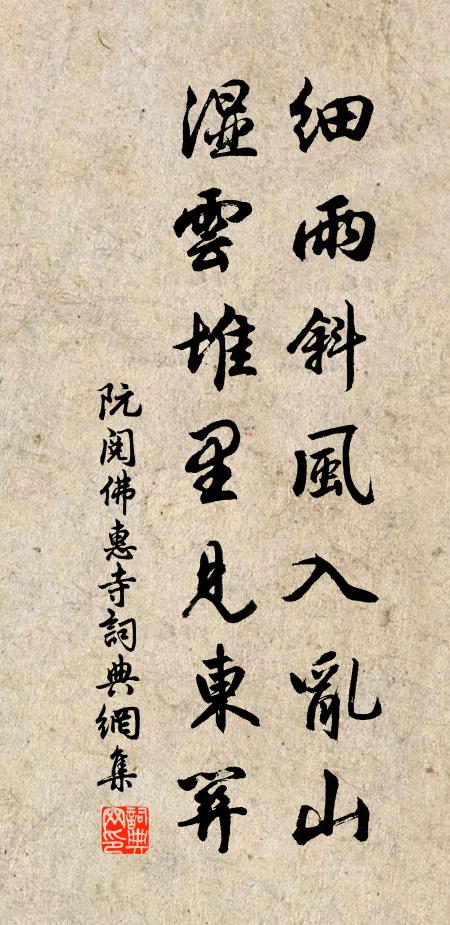 細雨斜風入亂山
濕雲堆里見東
阮閱佛惠寺詞典網集
詞典網印